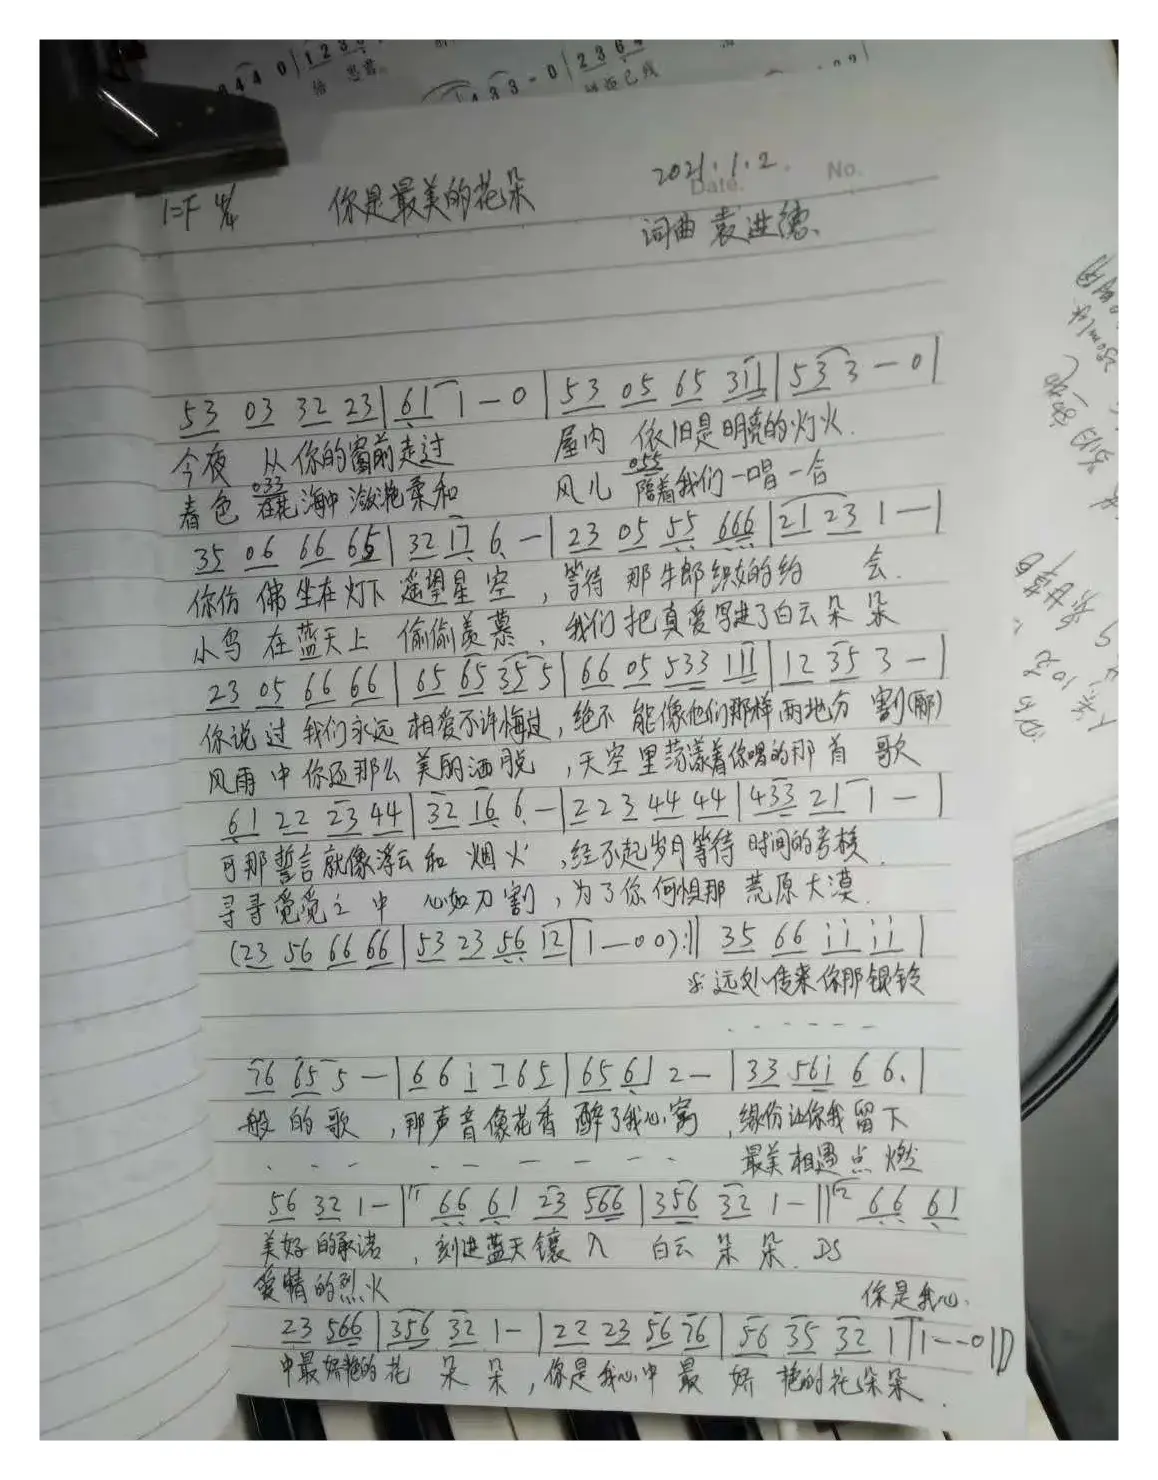 2021.1.2.
Date. No.
1=F 4/4 你是最美的花朵
词曲 袁进德
53 03 32 23 | 61 1 - 0 | 53 05 65 311 | 53 3 - 0 |
今夜 从你的窗前走过 屋内 依旧是明亮的灯火.
033 055
春色 在花海中潋滟柔和 风儿 陪着我们一唱一合
35 06 66 65 | 32 17 6 - | 23 05 55 666 | 21 23 1 - |
你仿佛坐在灯下遥望星空, 等待那牛郎织女的约会.
小鸟在蓝天上偷偷羡慕, 我们把真爱写进了白云朵朵
23 05 66 66 | 65 65 35 5 | 66 05 533 111 | 12 35 3 - |
你说过我们永远相爱不许悔过, 绝不能像他们那样两地分割(那)
风雨中你还那么美丽洒脱, 天空里荡漾着你唱的那首歌
61 22 23 44 | 32 16 6 - | 22 3 44 44 | 433 21 1 - |
可那誓言就像浮云和烟火, 经不起岁月等待时间的考核.
寻寻觅觅之中心如刀割, 为了你何惧那荒原大漠.
(23 56 66 66 | 53 23 56 12 | 1 - 0 0) :|| 35 66 ii ii |
远处传来你那银铃
76 65 5 - | 66 i 7 65 | 65 61 2 - | 33 56i 6 6. |
般的歌, 那声音像花香醉了我心窝, 缘份让你我留下
最美相遇点燃
56 32 1 - | 66 61 23 566 | 356 32 1 - || 66 61
美好的承诺, 刻进蓝天镶入白云朵朵. DS
爱情的烈火 你是我心.
23 566 | 356 32 1 - | 22 23 56 76 | 56 35 32 1 | 1 - - 0 ||
中最娇艳的花朵朵, 你是我心中最娇艳的花朵朵.